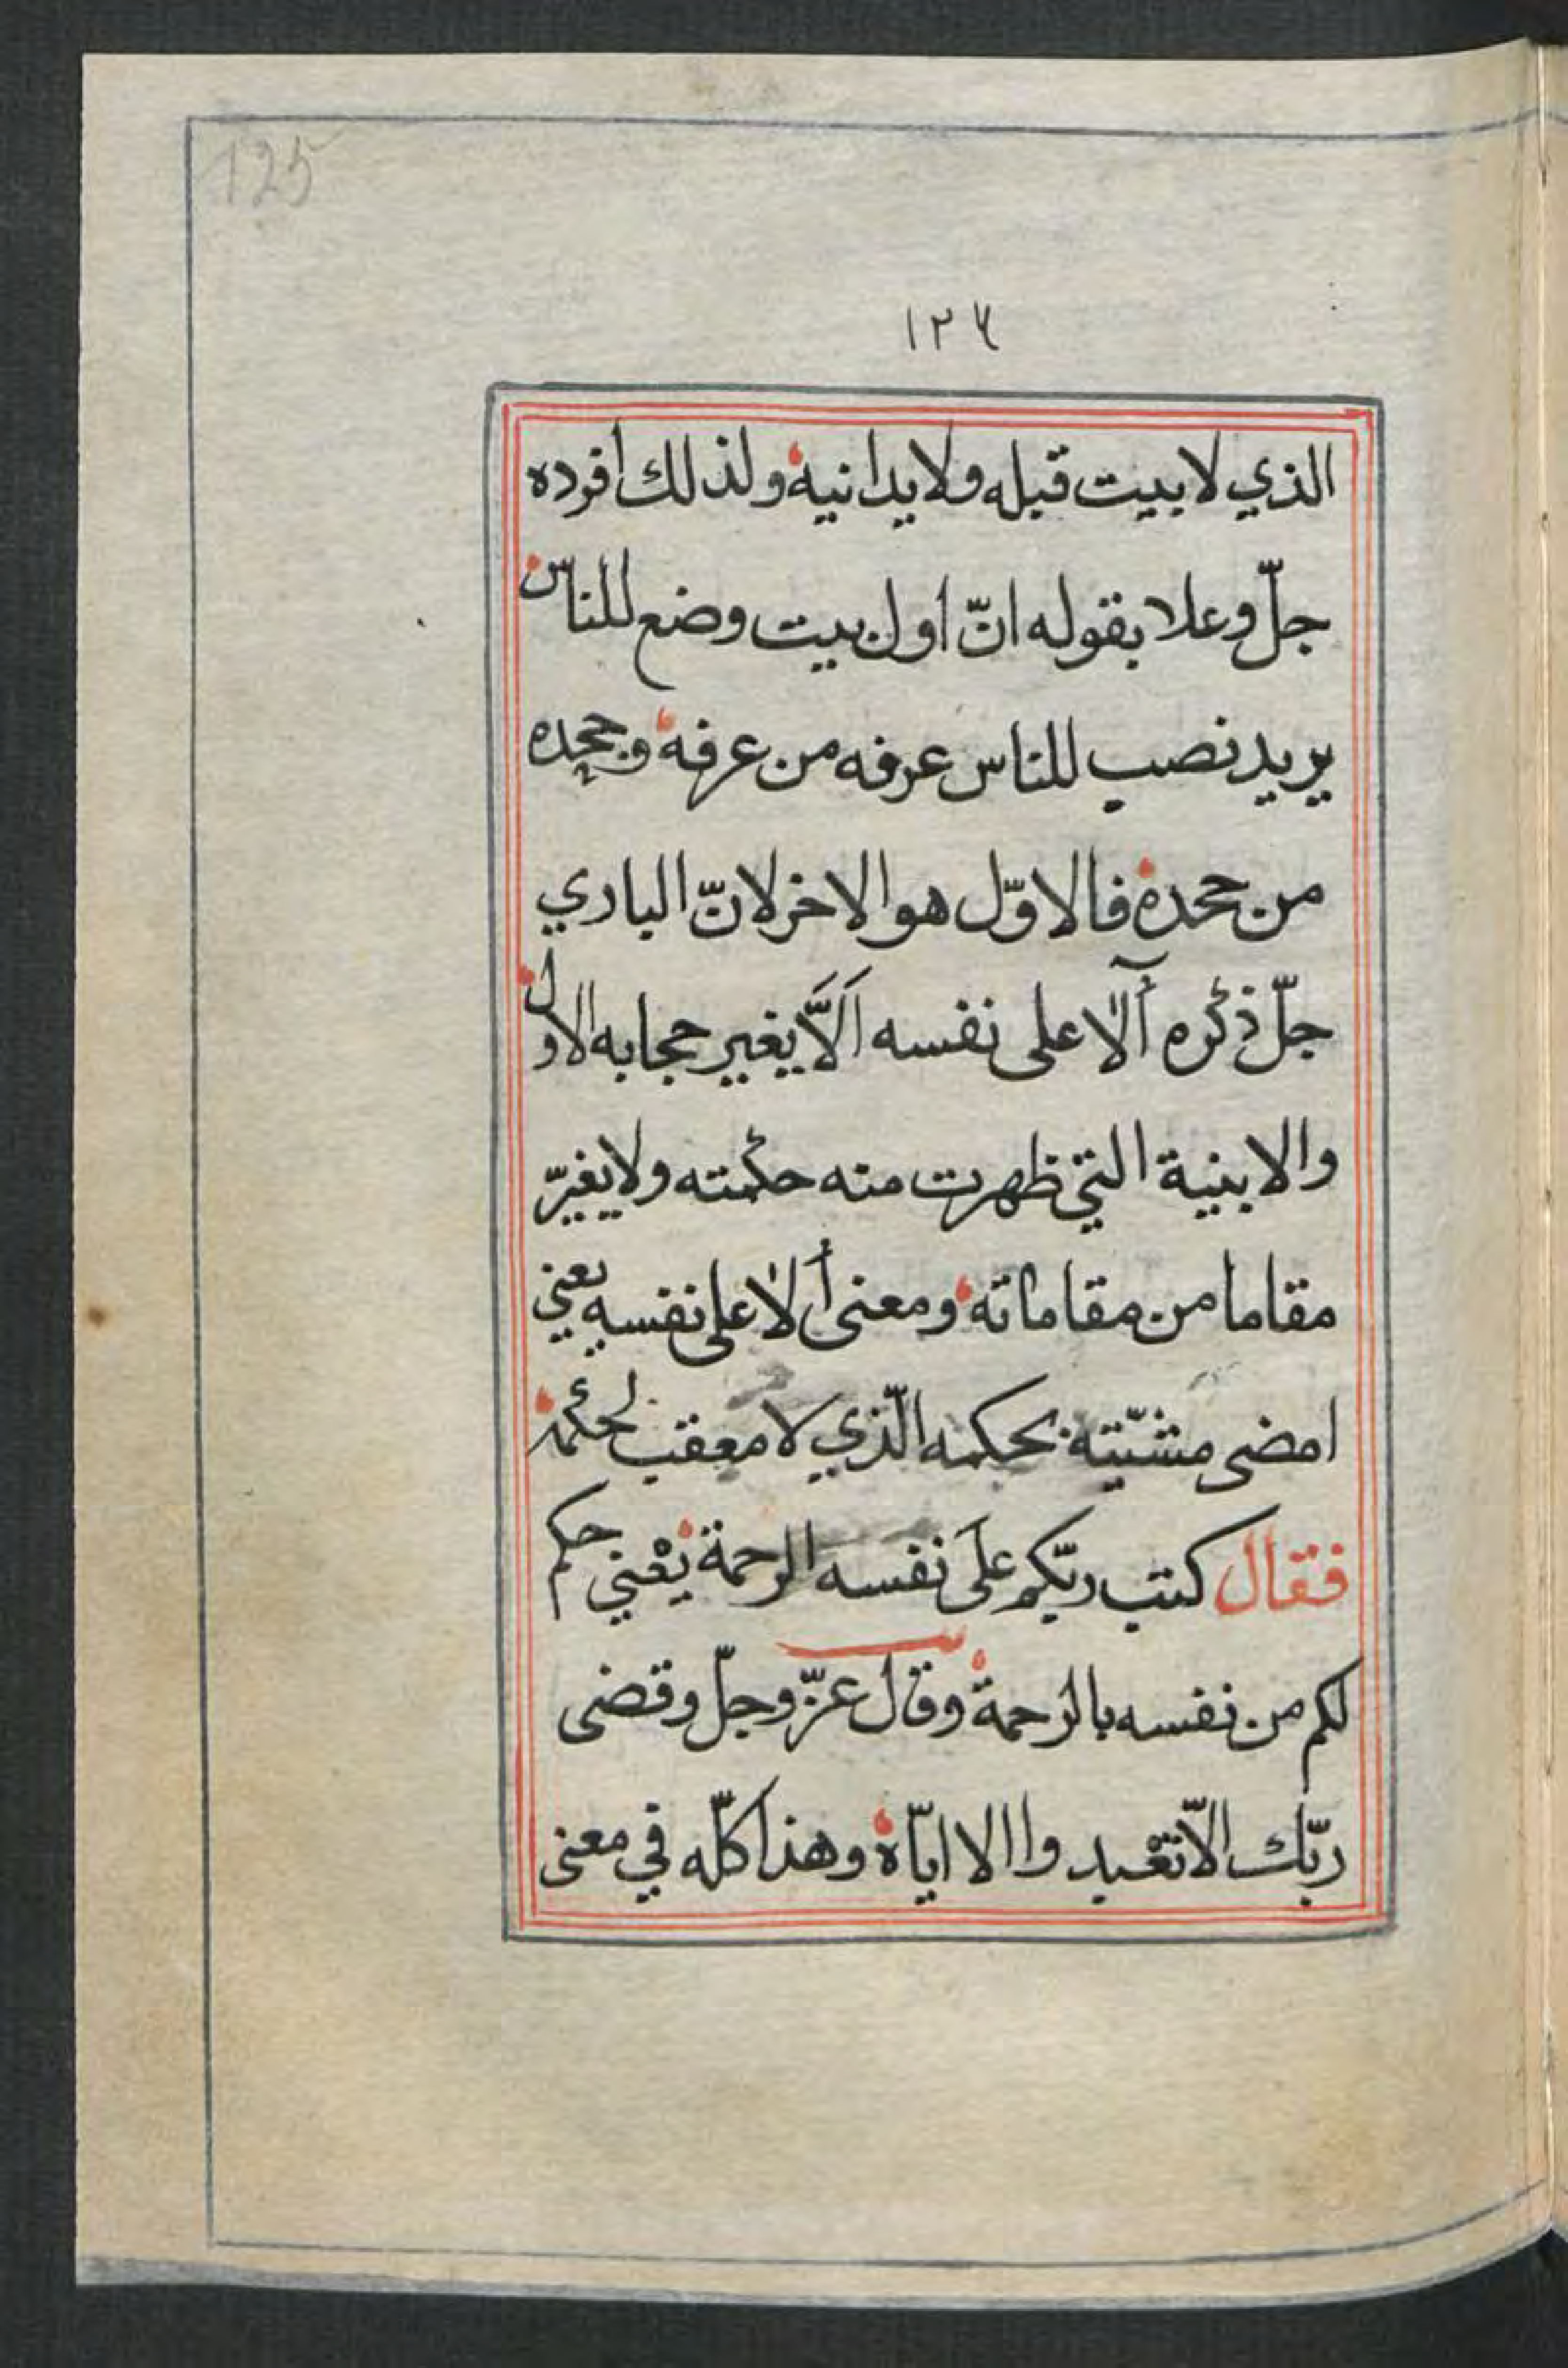 125
١٢٤
الذي لا بيت قبله ولا يدانيه ولذلك افرده
جلّ وعلا بقوله انّ اول بيت وضع للناس
يريد نصب للناس عرفه من عرفه وجحده
من جحده فالاوّل هو الاخر لانّ الباري
جلّ ذكره آلا على نفسه اَلَّا يغير حجابه الاول
والابنية التي ظهرت منه حكمته ولا يغيّر
مقاما من مقاماته ومعنى ألا على نفسه يعني
امضى مشيّته بحكمه الّذي لا معقب لحكمه
فقال كتب ربّكم على نفسه الرحمة يعْني حكم
لكم من نفسه بالرحمة وقال عزّ وجلّ وقضى
ربّك الّا تعْبد وا الا ايّاه وهذا كلّه في معنى